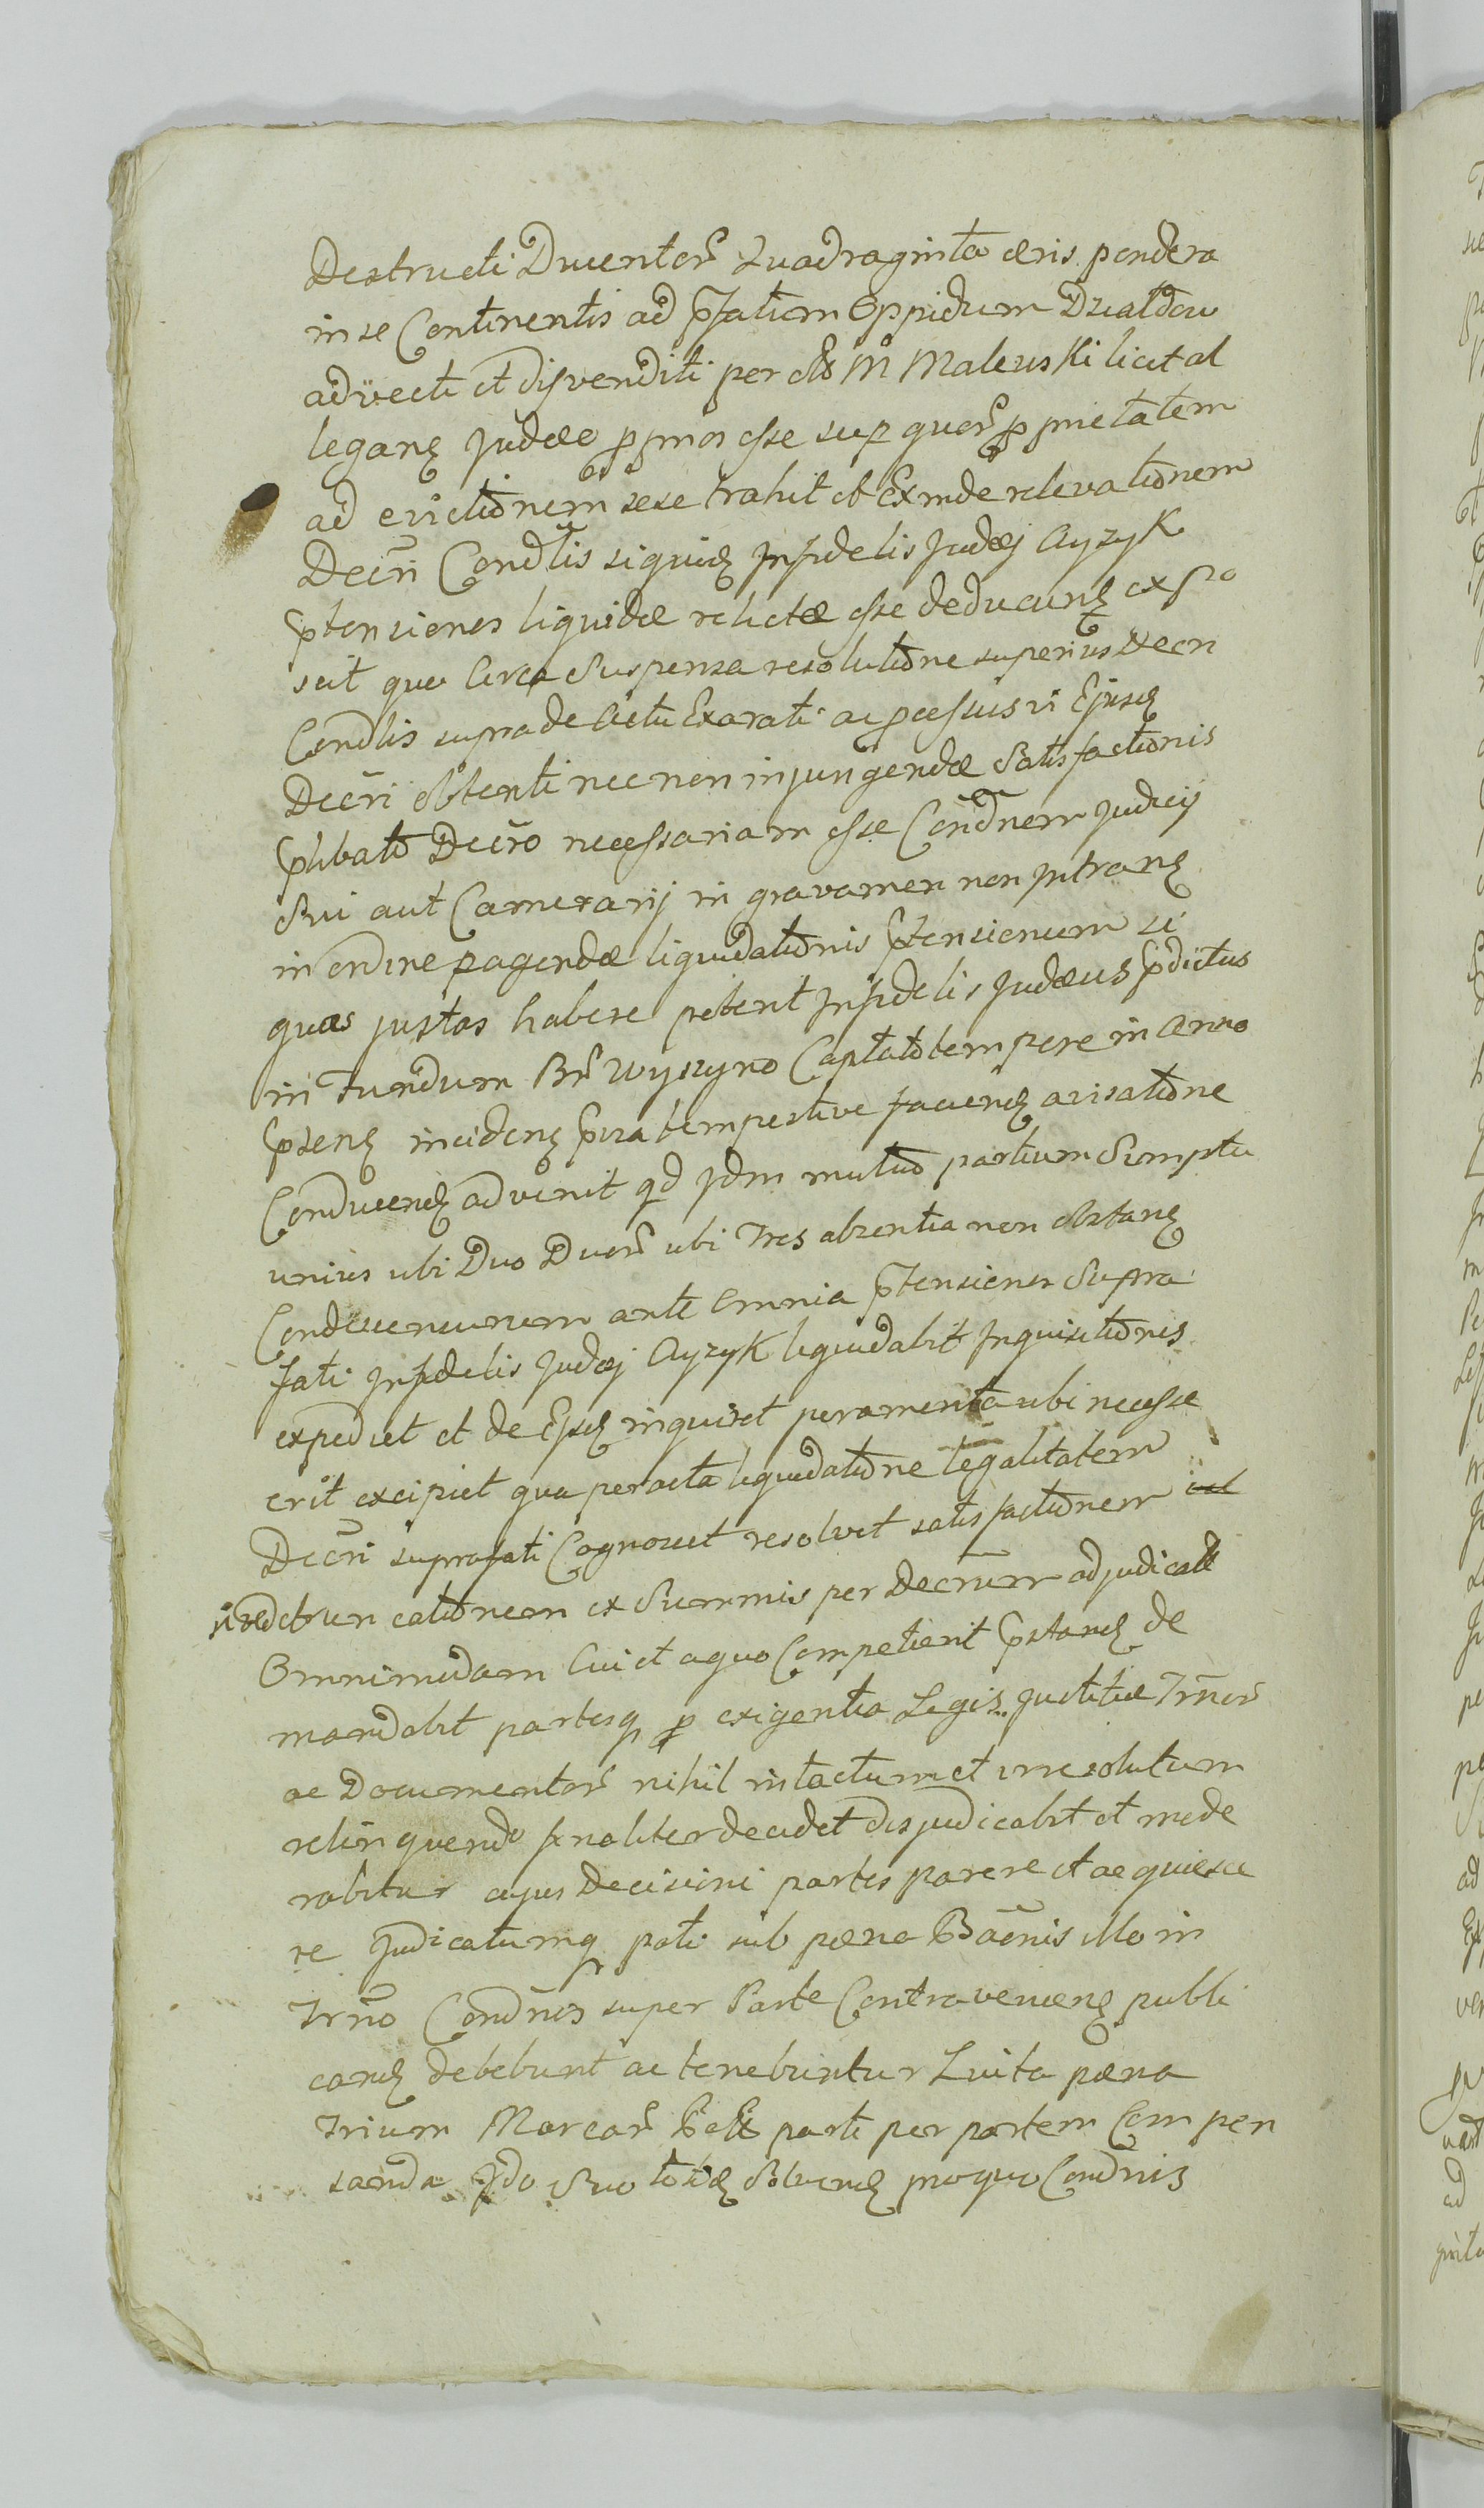 Destructi Ducentor̃ Quadraginta æris pondera
in se Continentis ad p̃fatum Oppidum Działdow
advecti et disvenditi per M Malewski licet al
legane Judæo proprios esse super quor̃ proprietatem
ad evictionem sese trahit et Exinde relevationem
Decri Condlis siquid Infidelis Judæj Ayzyk
p̃tensiones liquidæ relictæ esse deducunt ex
scit quo Circa Suspensa resolutione superius Decri
Condlis supra de Actu Exarati ac processus vi Ejusd
Decri obtenti nec non injungendæ Satisfactionis
p̃libato Decro necessariam esse Condnem Judicij
Sui aut Camerarij in gravamen non Intrand
in ordine peragendæ liquidationis p̃tensionum si
quas justas habere potent Infidelis Judæus p̃dictus
in Fundum Bor̃ Wyszyno Captato tempore in Anno
p̃senti inciden p̃via tempestive faciend avisatione
Conducend advenit qd Idm mutuo partium Sumptu
unius ubi Duo Duor̃ ubi Tres absentia non obstand
Condescensurum ante Omnia p̃tensiones Supra
fati Infidelis Judæj Ayzyk liquidabit Inquisitiones
expediet et de Ejsd inquiret juramenta ubi necesse
erit excipiet qua peracta liquidatione legalitatem
Decri suprafati Cognoscet resolvet satisfactionem
ex Summis per Decrum adjudicat
Omnimodam Cui et a quo Competierit p̃stand de
mandabit partesq pro exigentia Legis Justitiæ Trnor̃
ac Documentor̃ nihil intactum et irresolutum
relinquendo finaliter decidet disjudicabit et mode
rabitur cujus Decisioni partes parere et acquiesce
re Judicatumq pati sub pæna Banis Illo in
Trno Condnes super Parte Contraveniend publi
cand debebunt ac tenebuntur Luita pæna
Trium Marcar̃ parti per partem Compen
sanda suo toties Solvend pro quo Condnis